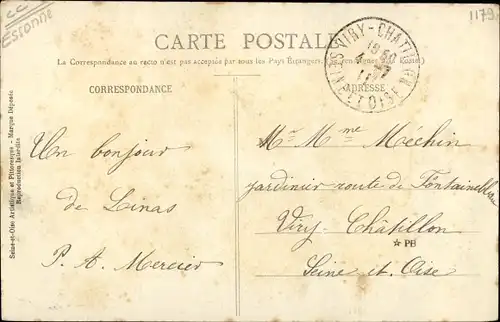 CC
Essonne
1179
CARTE POSTALE
La Correspondance au recto n'est pas acceptée par tous les Pays Étrangers.
CORRESPONDANCE
ADRESSE
VIRY-CHATILLON
18 50
SEINE ET OISE
Seine-et-Oise Artistique et Pittoresque - Marque Déposée
Reproduction Interdite
Un bonjour
de Linas
P. A. Mercier
Mr Mme Méchin
jardinier route de Fontainebleau
Viry-Châtillon
* PH
Seine et Oise